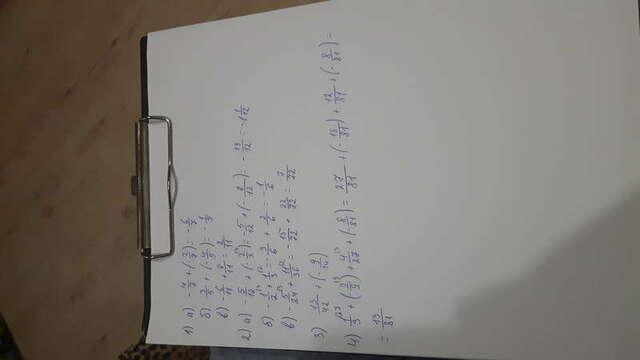 1) а) -4/7 + (-2/7) = -6/7
б) 3/5 + (-4/5) = -1/5
в) -6/11 + 8/11 = 2/11
2) а) -5/12 + (-2/3) = -5/12 + (-8/12) = -13/12 = -1 1/12
б) -1/2 + 1/3 = -3/6 + 2/6 = -1/6
в) -5/24 + 11/36 = -15/72 + 22/72 = 7/72
3) 13/42 + (-9/14)
4) 1/3 + ( ) + 4/27 + (-8/81) = 27/81 + ( ) + 12/81 + (-8/81) =
= 13/81